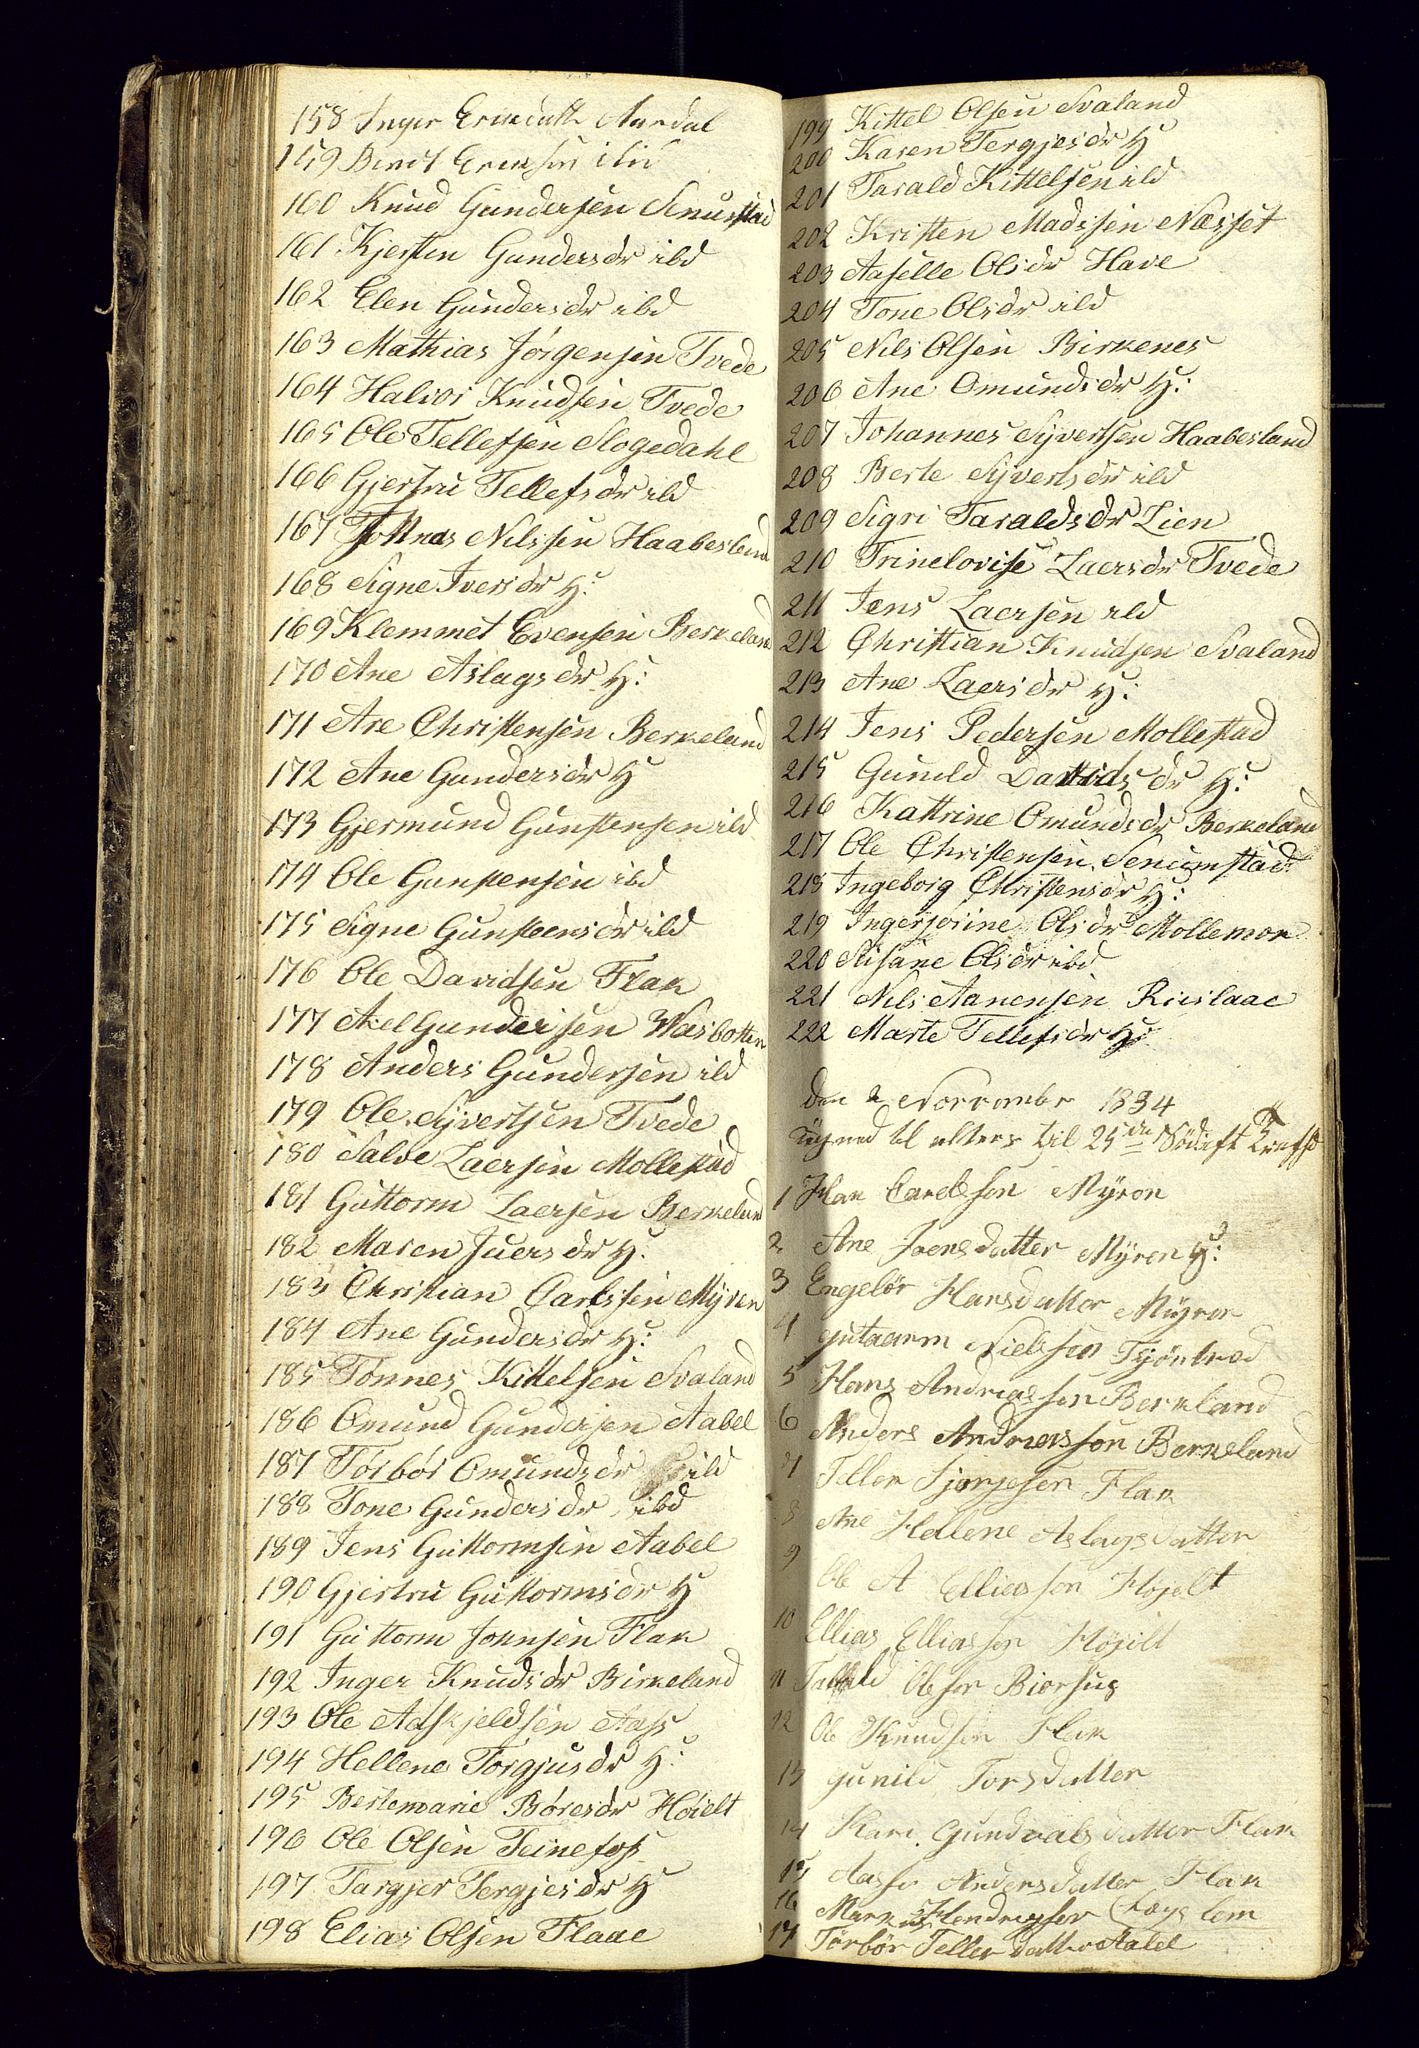 158 Inger Ericdatt Aardal
159 Berit Ericksen ibd
160 Knud Gundersen Senumstad
161 Kjersten Gundersdr ibd
162 Elen Gundersdr ibd
163 Mathias Jörgensen Tvede
164 Halvor Knudsen Tvede
165 Ole Tellefsen Slogedahl
166 Gjertru Tellefsdr ibd
167 Nilssen Haabesland
168 Signe Iversdr H:
169 Klemmet Evensen Berkeland
170 Ane Aslagsdr H:
171 Are Christensen Berkeland
172 Ane Gundersdr H
173 Gjermund Gunstensen ibd
174 Ole Gunstensen ibd
175 Signe Gunsteensdr ibd
176 Ole Davidsen Flak
177 Axel Gundersen Wasbotten
178 Anders Gundersen ibd
179 Ole Syvertsen Tvede
180 Salve Laersen Mollestad
181 Guttorm Laersen Berkeland
182 Maren Juersdr H:
183 Christian Carlssen Myren
184 Ane Gundersdr H:
185 Tönnes Kittelsen Svaland
186 Omund Gundersen Aabel
187 Torbór Omundsdr ibd
188 Tone Gundersdr ibd
189 Jens Guttormsen Aabel
190 Gjertru Guttormsdr H
191 Guttorm Johnsen Flak
192 Inger Knudsdr Birkeland
193 Ole Adskjeldsen Aass
194 Hellene Torgjusdr H:
195 Bertemarie Böresdr Höielt
196 Ole Olsen Teinefoss
197 Targjer Tergjesdr H
198 Elias Olsen Flaae
199 Kittel Olsen Svaland
200 Karen Tergjesdr H
201 Tarald Kittelsen ibd
202 Kristen Madssen Næsset
203 Aaselle Olsdr Have
204 Tone Olsdr ibd
205 Nils Olsen Birkenes
206 Ane Omundsdr H:
207 Johannes Syvertsen Haabesland
208 Berte Syvertsdr ibd
209 Sigri Taraldsdr Lien
210 Trinelovise Laersdr Tvede
211 Jens Laersen ibd
212 Christian Knudsen Svaland
213 Ane Laersdr H:
214 Jens Pedersen Mollestad
215 Gunild Davidsdr H:
216 Kattrine Omundsdr Berkeland
217 Ole Christensen Senumstad
218 Ingeborg Christensdr H:
219 Ingerjorine Olsdr Mollemon
220 Susane Olsdr ibd
221 Nils Aanensen Rislaae
222 Marte Tellefsdr H:
Den 2 Novembr 1834
til alters til 25de Sødaft Trefs
1 Hans Carelsson Myron
2 Ane Jaensdatter Myren H:
3 Engelör Hansdatter Myron
4 gutaarm Nielsson
5 Hans Andreasson Berkland
6 Anders Andreasson Berkeland
7 Tellov Flak
8 Ane Hellene Aslagsdatter
9 Ole A Elliasson Höjelt
10 Ellias Elliasson Höjelt
11 Olsson
12 Ole Knudson Flak
13 gunild Torsdatter
14 Kari Gundvalsdatter Flak
15 Aasse Andersdatter Flak
16 Markus Hendrigsen
17 Törbör Tellevdatter Aabel